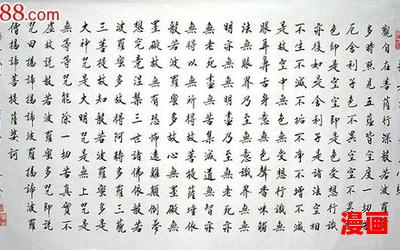 88.com
觀自在菩薩行深般若波羅蜜
多時照見五蘊皆空度一切苦
厄舍利子色不異空空不異色
色即是空空即是色受想行識
亦復如是舍利子是諸法空相
不生不滅不垢不淨不增不減
是故空中無色無受想行識無
眼耳鼻舌身意無色聲香味觸
法無眼界乃至無意識界無無
明亦無無明盡乃至無老死亦
無老死盡無苦集滅道無智亦
無得以無所得故菩提薩埵依
般若波羅蜜多故心無罣礙無
罣礙故無有恐怖遠離顛倒夢
想究竟涅槃三世諸佛依般若
波羅蜜多故得阿耨多羅三藐
三菩提故知般若波羅蜜多是
大神咒是大明咒是無上咒是
無等等咒能除一切苦真實不
虛故說般若波羅蜜多咒即說
咒曰揭諦揭諦波羅揭諦波羅
僧揭諦菩提薩婆訶
漫画